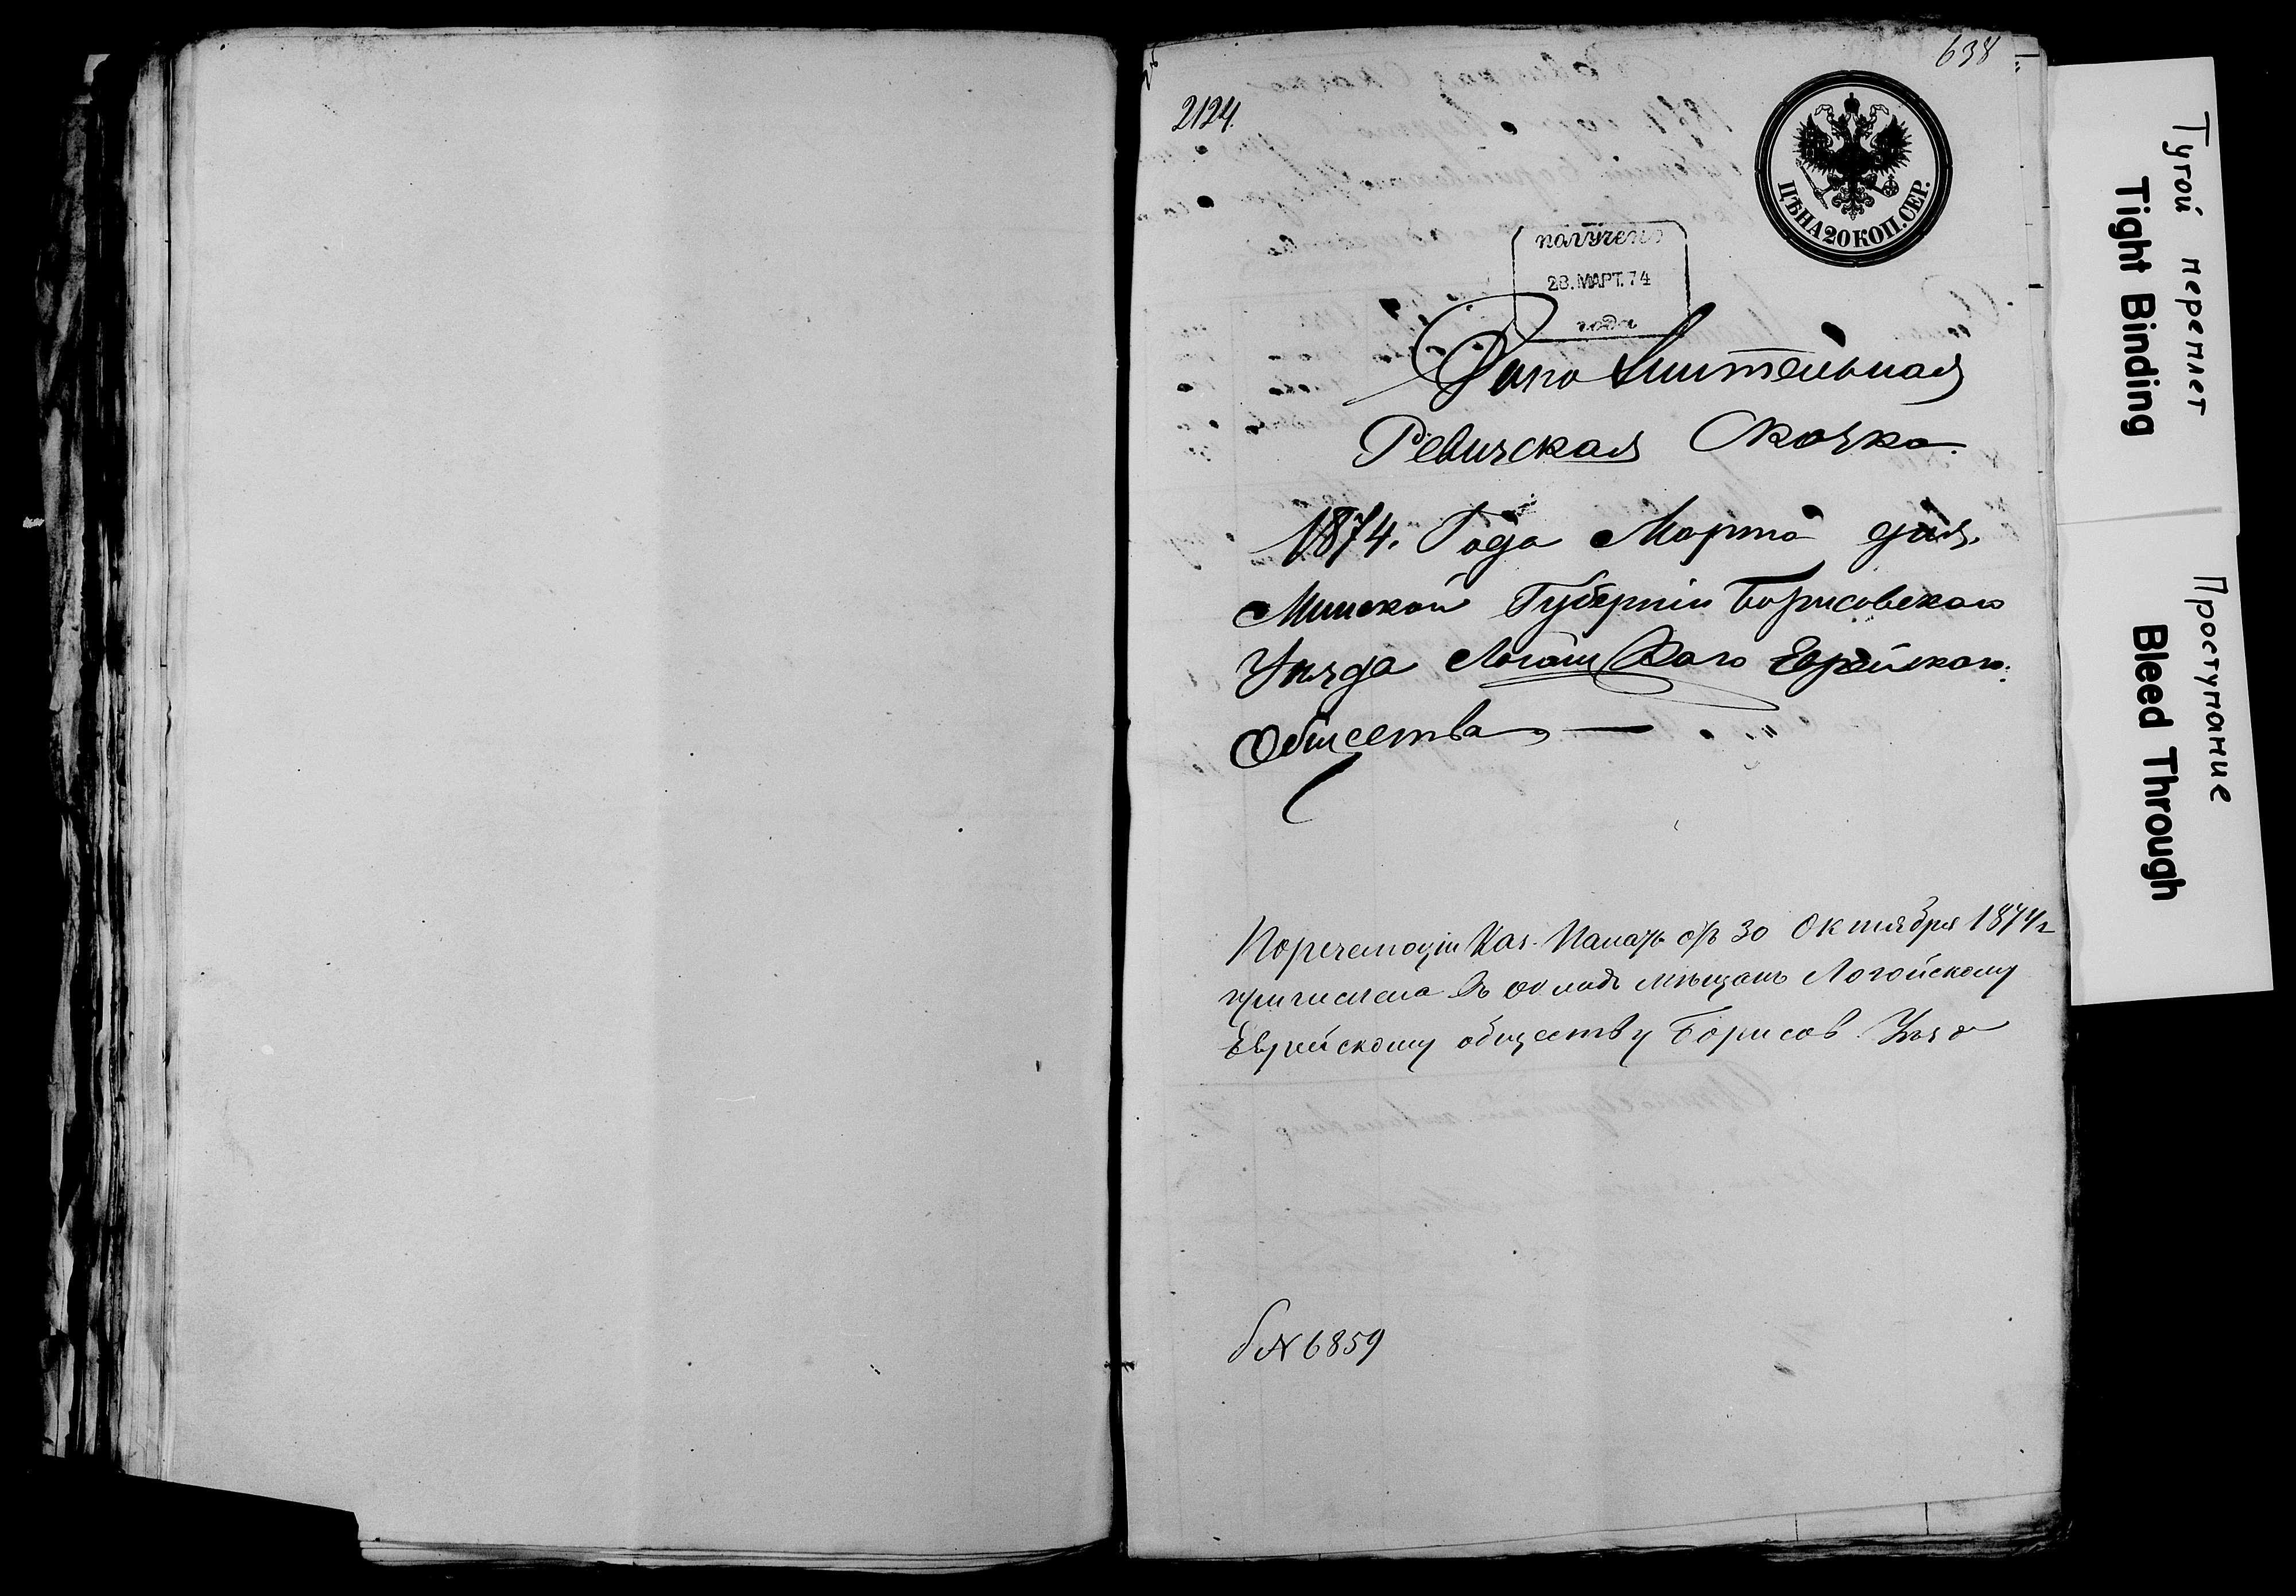 638
2124.
ЦѢНА 20 КОП. СЕР.
получено
28. МАРТ. 74
года
Дополнительная
Ревизская Сказка.
1874. Года Марта дня.
Минской Губерніи Борисовскаго
Уѣзда Логойскаго Еврейскаго
Общества
Каз. Палаты 30 Октября 1874 г
причислена въ окладъ мѣщанъ Логойскому
Еврейскому обществу Борисов. Уѣзда
№ 6859
Тугой переплет
Tight Binding
Проступание
Bleed Through